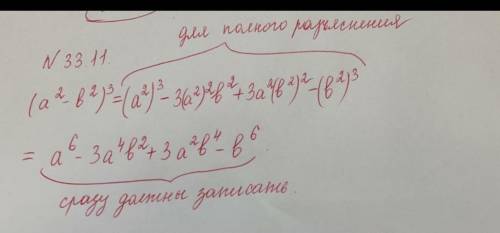 для полного разъяснения
N 33.11.
(a² - b²)³ = (a²)³ - 3(a²)²b² + 3a²(b²)² - (b²)³
= a⁶ - 3a⁴b² + 3a²b⁴ - b⁶
сразу должны записать.